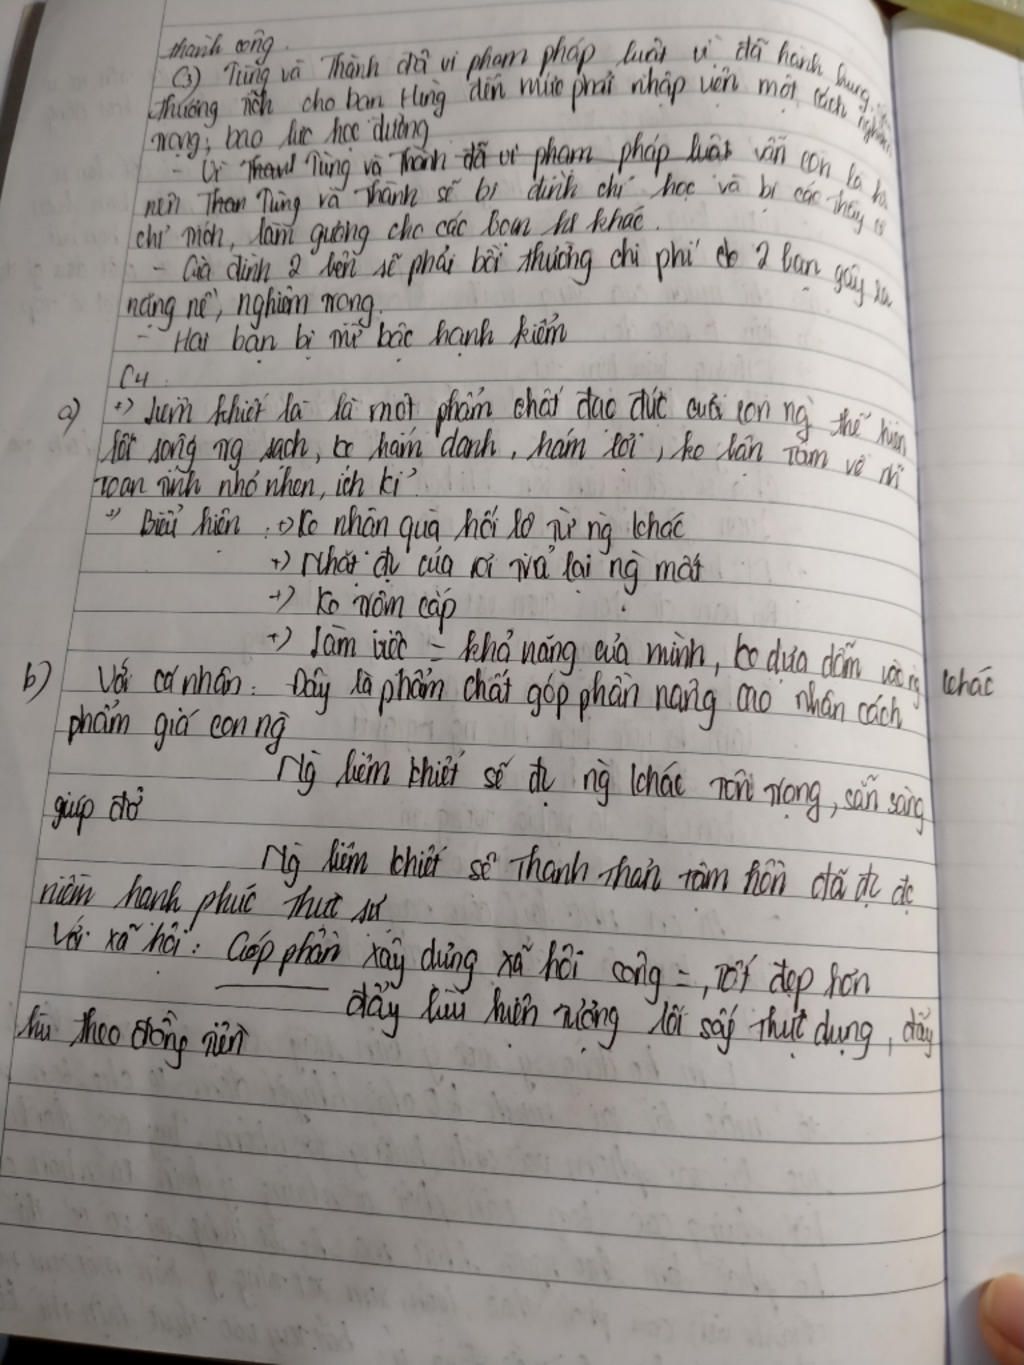 thành công.
C3) Tùng và Thành đã vi phạm pháp luật vì đã hành hung,
thương tích cho bạn Hùng đến mức phải nhập viện một cách nghiêm
trọng, bạo lực học đường
- Vì Tùng và Thành đã vi phạm pháp luật vẫn còn là
nên Tùng và Thành sẽ bị đình chỉ học và bị các thầy cô
chỉ trích, làm gương cho các bạn hs khác.
- Gia đình 2 bên sẽ phải bồi thường chi phí do 2 bạn gây ra
nặng nề, nghiêm trọng.
- Hai bạn bị trừ bậc hạnh kiểm
C4
a) +) Liêm khiết là là một phẩm chất đạo đức của con ng thể hiện
lối sống ng sạch, ko hám danh, hám lợi, ko bận tâm về n~
toan tính nhỏ nhen, ích kỉ
+) Biểu hiện : +) Ko nhận quà hối lộ từ ng khác
+) Nhặt đc của rơi trả lại ng mất
+) Ko trộm cắp
+) Làm việc = khả năng của mình, ko dựa dẫm vào ng khác
b) Với cá nhân: Đây là phẩm chất góp phần nâng cao nhân cách
phẩm giá con ng
Ng liêm khiết sẽ đc ng khác tôn trọng, sẵn sàng
giúp đỡ
Ng liêm khiết sẽ thanh thản tâm hồn đã đc đc
niềm hạnh phúc thực sự
Với xã hội: Góp phần xây dựng xã hội công =, tốt đẹp hơn
đẩy lùi hiện tượng lối sống thực dụng, đẩy
lùi theo đồng tiền